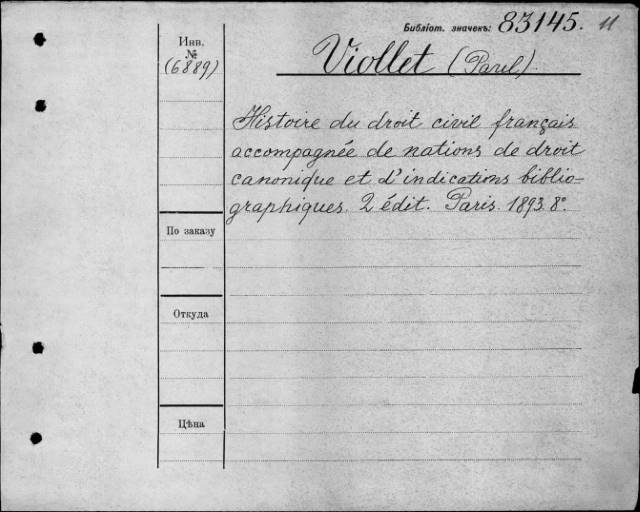 Библіот. значекъ: 83145. 11
Инв.
№
(6889)
Viollet (Parel).
Histoire du droit civil français
accompagnée de nations de droit
canonique et d'indications biblio-
graphiques. 2 édit. Paris. 1893. 8°.
По заказу
Откуда
Цѣна